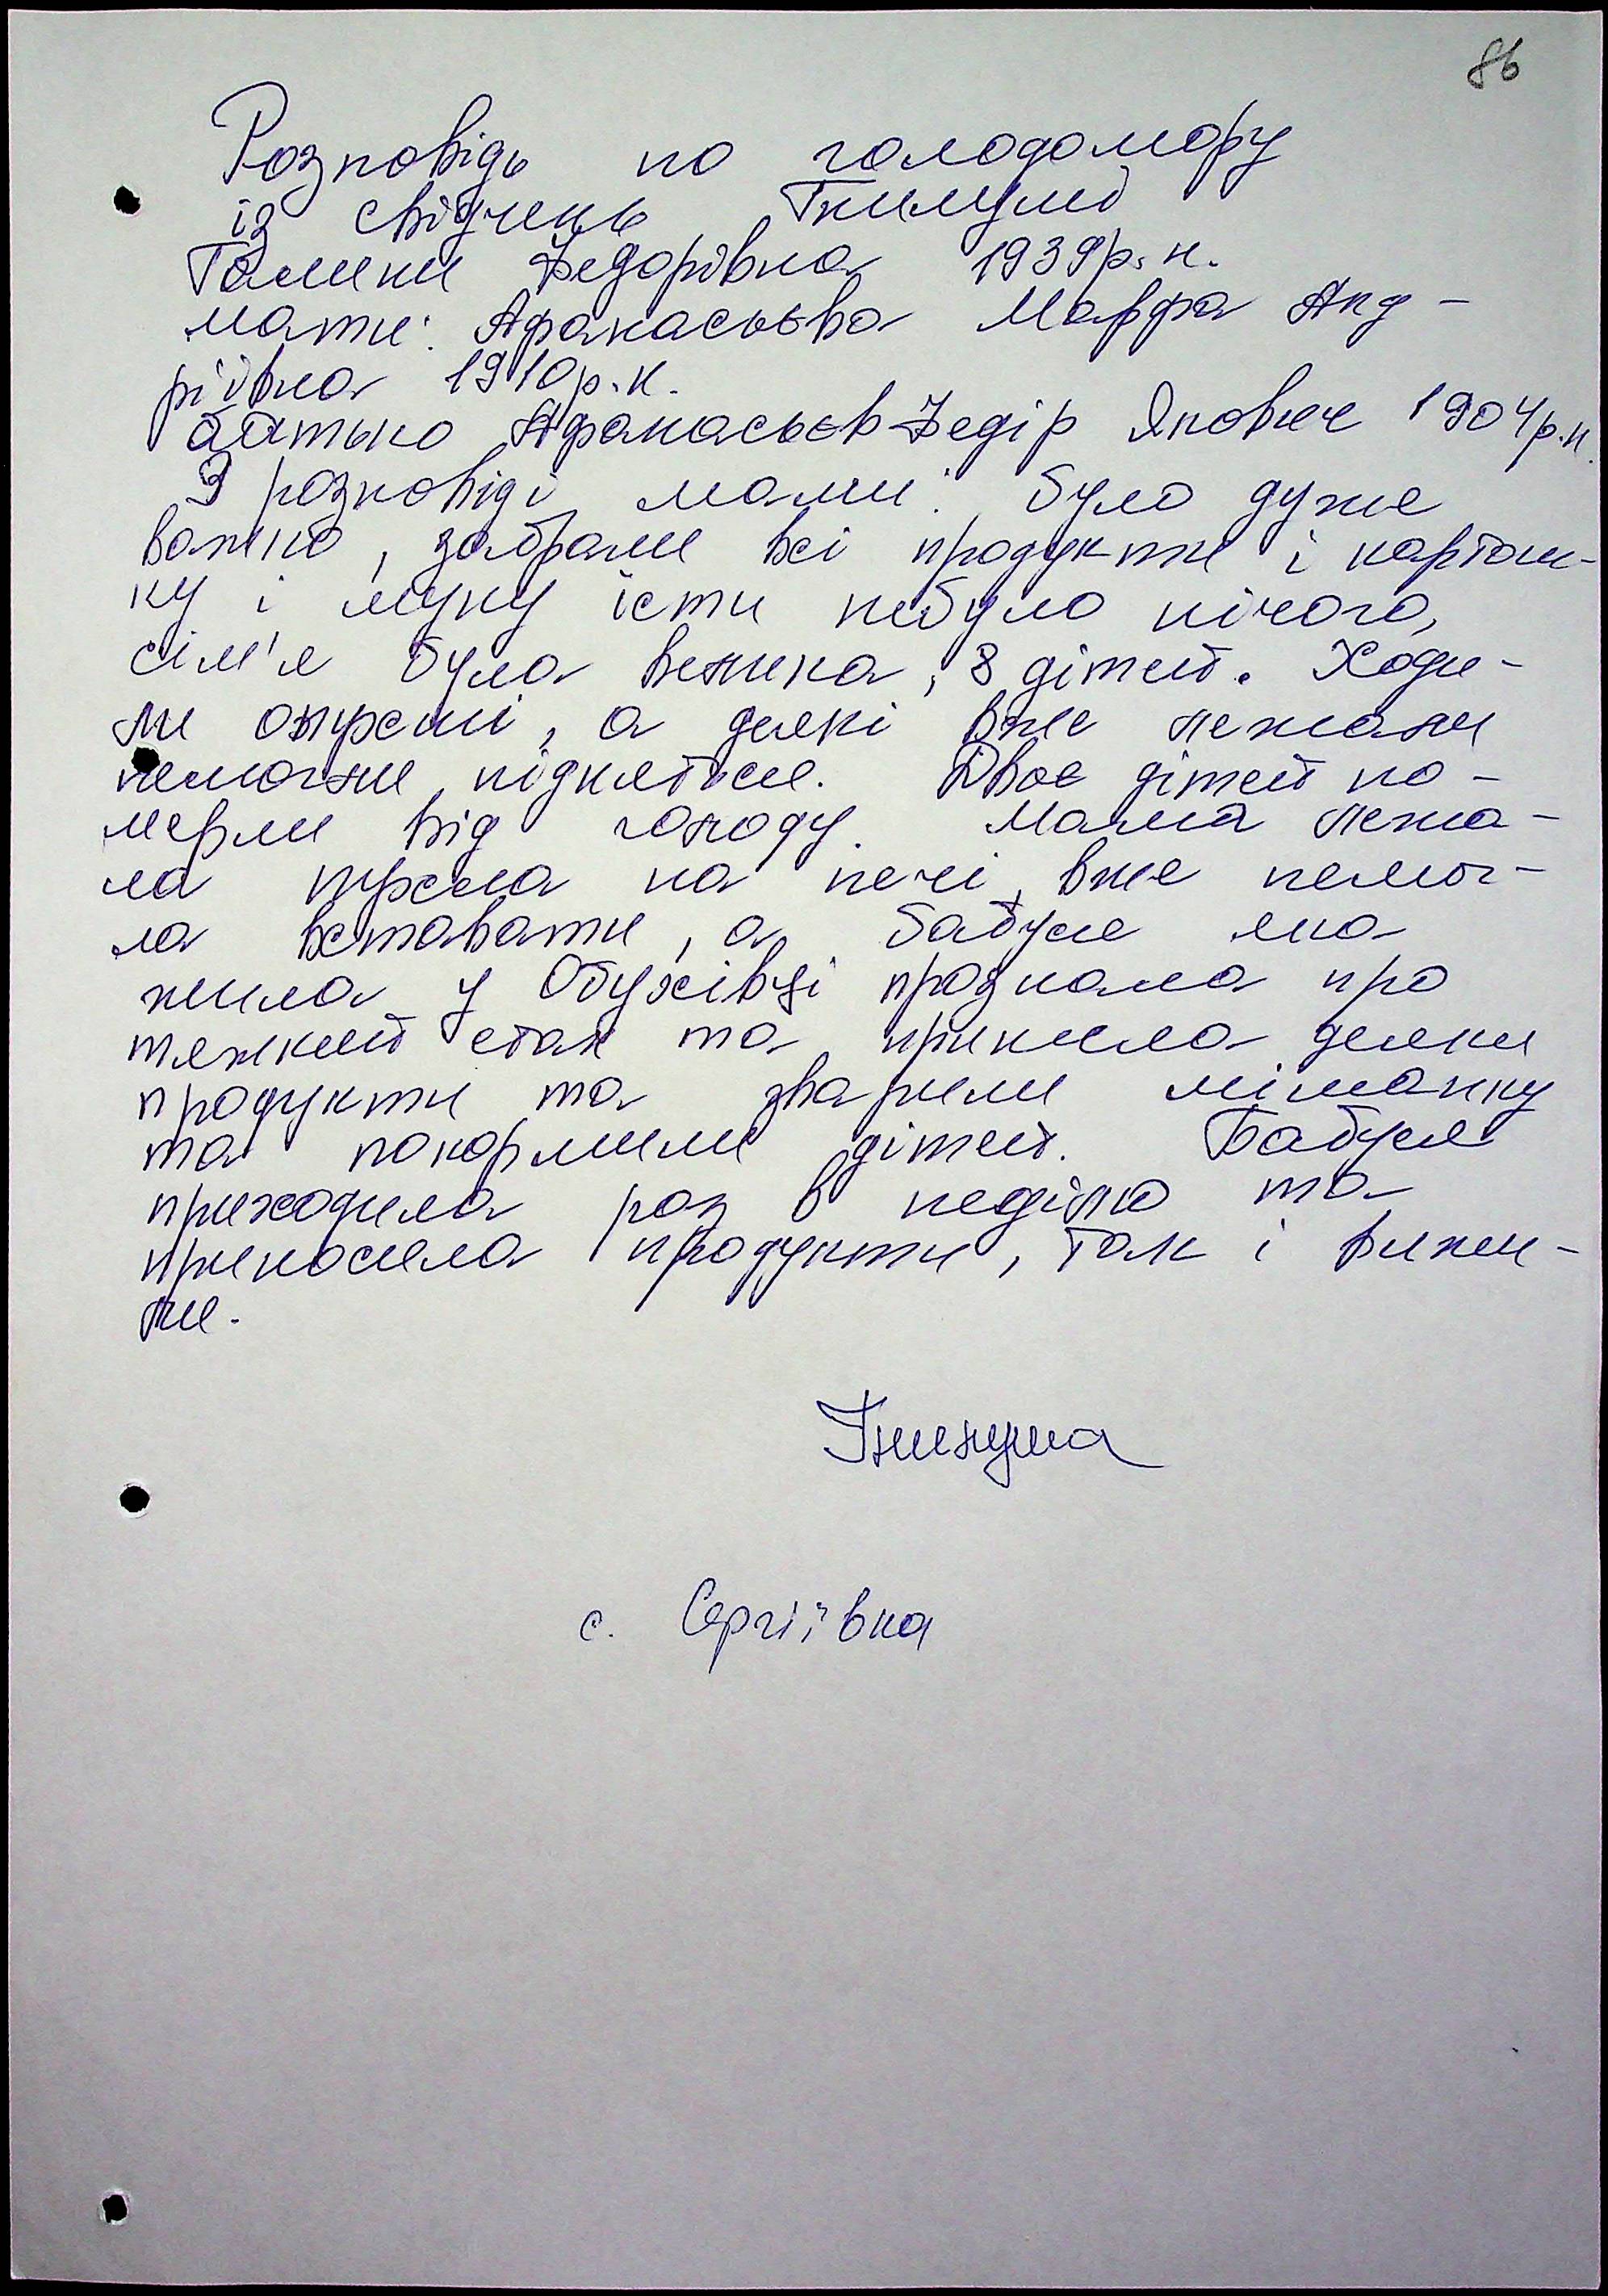 86
Розповідь по голодомору
із свідчень
Галини Федорівна 1939р. н.
мати: Афанасьєва Марфа Анд-
ріївна 1910р. н.
батько Афанасьєв Федір Якович 1904р. н.
З розповіді мами: було дуже
важко, забрали всі продукти і картош-
ку і муку їсти небуло нічого,
сім'я була велика, 8 дітей. Ходи-
ли опухші, а деякі вже лежали
немогли піднятися. Двоє дітей по-
мерли від голоду. Мама лежа-
ла пухла на печі, вже немог-
ла вставати, а бабуся яка
жила у Обухівці прознала про
тяжкий стан та принесла деяки
продукти та зварили мішанку
та покормили дітей. Бабуся
приходила раз в неділю та
приносила продукти, так і вижи-
ли.
с. Сергіївка